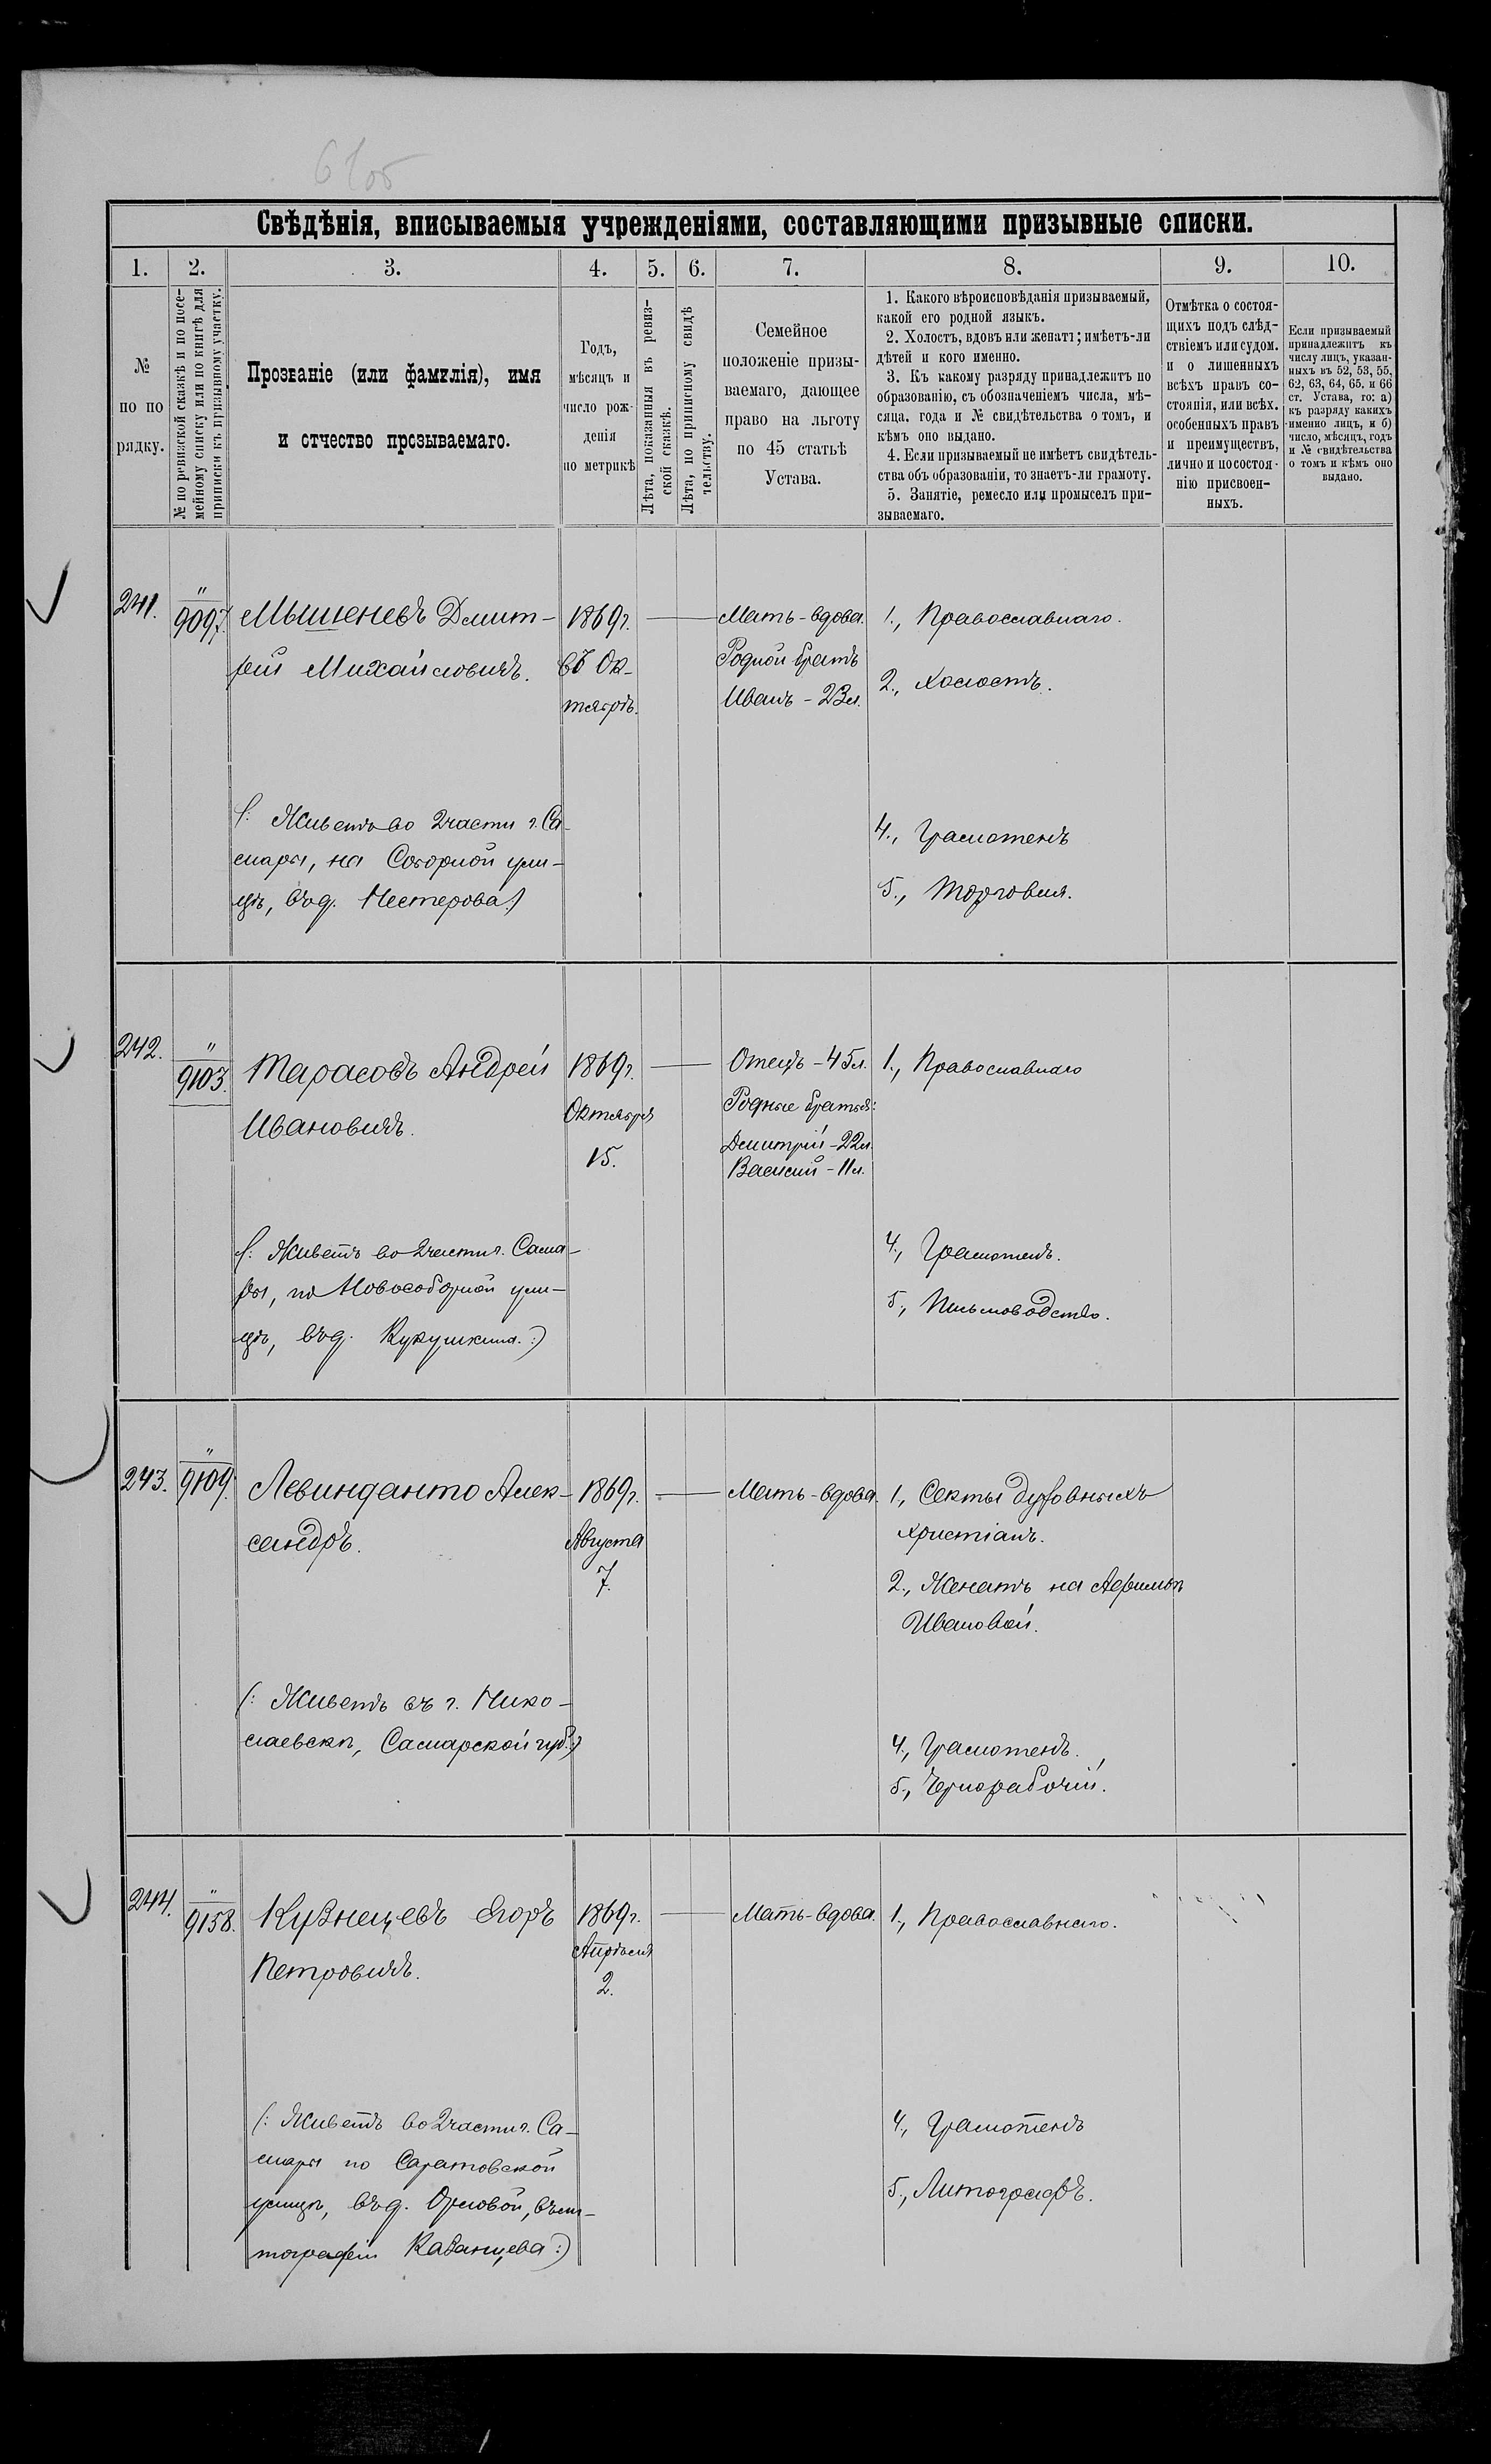 Свѣдѣнія, вписываемыя учрежденіями, составляющими призывные списки.
1. 2. 3. 4. 5. 6. 7. 8. 9. 10.
№
по по
рядку.
№ по ревизской сказкѣ и по посе-
мейному списку или по книгѣ для
приписки къ призывному участку.
Прозваніе (или фамилія), имя
и отчество прозываемаго.
Годъ,
мѣсяцъ и
число рож-
денія
по метрикѣ
Лѣта, показанныя въ ревиз-
ской сказкѣ.
Лѣта, по приписному свидѣ
тельству.
Семейное
положеніе призы-
ваемаго, дающее
право на льготу
по 45 статьѣ
Устава.
1. Какого вѣроисповѣданія призываемый,
какой его родной языкъ.
2. Холостъ, вдовъ или женатъ; имѣетъ-ли
дѣтей и кого именно.
3. Къ какому разряду принадлежитъ по
образованію, съ обозначеніемъ числа, мѣ-
сяца, года и № свидѣтельства о томъ, и
кѣмъ оно выдано.
4. Если призываемый не имѣетъ свидѣтель-
ства объ образованіи, то знаетъ-ли грамоту.
5. Занятіе, ремесло или промыселъ при-
зываемаго.
Отмѣтка о состоя-
щихъ подъ слѣд-
ствіемъ или судом.
и о лишенныхъ
всѣхъ правъ со-
стоянія, или всѣх.
особенныхъ правъ
и преимуществъ,
лично и по состоя-
нію присвоен-
ныхъ.
Если призываемый
принадлежитъ къ
числу лицъ, указан-
ныхъ въ 52, 53, 55,
62, 63, 64, 65. и 66
ст. Устава, то: а)
къ разряду какихъ
именно лицъ, и б)
число, мѣсяцъ, годъ
и № свидѣтельства
о томъ и кѣмъ оно
выдано.
241.
"
9097.
Мышеневъ Дмит-
рій Михайловичъ.
(: Живетъ во 2 части г. Са-
мары, на Соборной ули-
цѣ, въ д. Нестерова:)
1869 г.
въ Ок-
тябрѣ.
Мать-вдова.
Родной братъ
Иванъ - 23 л.
1., Православнаго.
2., Холостъ.
4., Грамотенъ
5., Торговля.
242.
"
9103.
Тарасовъ Андрей
Ивановичъ.
(: Живетъ во 2 части г. Сама-
ры, по Новособорной ули-
цѣ, въ д. Кукушкина:)
1869 г.
Октября
15.
Отецъ - 45 л.
Родные братья:
Дмитрій - 22 л.
Василій - 11 л.
1., Православнаго
4., Грамотенъ.
5., Письмоводство.
243.
"
9109.
Левинданто Алек-
сандръ.
(: Живетъ въ г. Нико-
лаевскѣ, Самарской губ.:)
1869 г.
Августа
7.
Мать-вдова.
1., Секты духовныхъ
христіанъ.
2., Женатъ на
Ивановой.
4., Грамотенъ.
5., Чернорабочій.
244.
"
9158.
Кузнецевъ Егоръ
Петровичъ.
(: Живетъ во 2 части г. Са-
мары по Саратовской
улицѣ, въ д. Орловой, въ ли-
тографіи Казанцева:)
1869 г.
Апрѣля
2.
Мать-вдова.
1., Православнаго.
4., Грамотенъ
5., Литографъ.